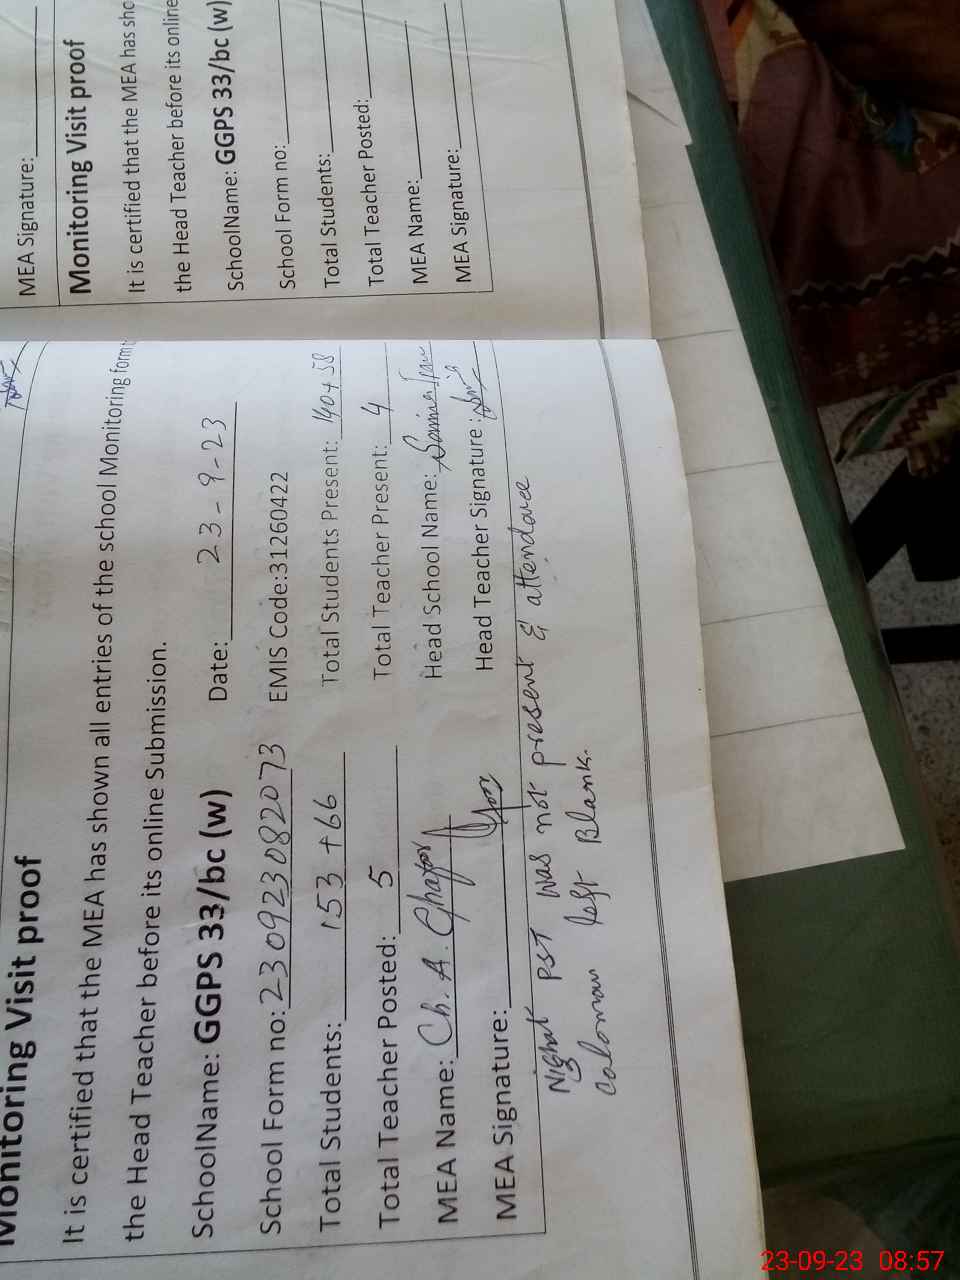 Monitoring Visit proof
It is certified that the MEA has shown all entries of the school Monitoring form
the Head Teacher before its online Submission.
SchoolName: GGPS 33/bc (w) Date: 23-9-23
School Form no: 230923082073 EMIS Code:31260422
Total Students: 153 +66 Total Students Present: 140+58
Total Teacher Posted: 5 Total Teacher Present: 4
MEA Name: Ch. A. Ghafor Head School Name:
MEA Signature: Head Teacher Signature :
Nighat PST was not present & attendance
Caloman left Blank.
MEA Signature:
Monitoring Visit proof
It is certified that the MEA has sho
the Head Teacher before its online
SchoolName: GGPS 33/bc (w)
School Form no:
Total Students:
Total Teacher Posted:
MEA Name:
MEA Signature:
23-09-23 08:57